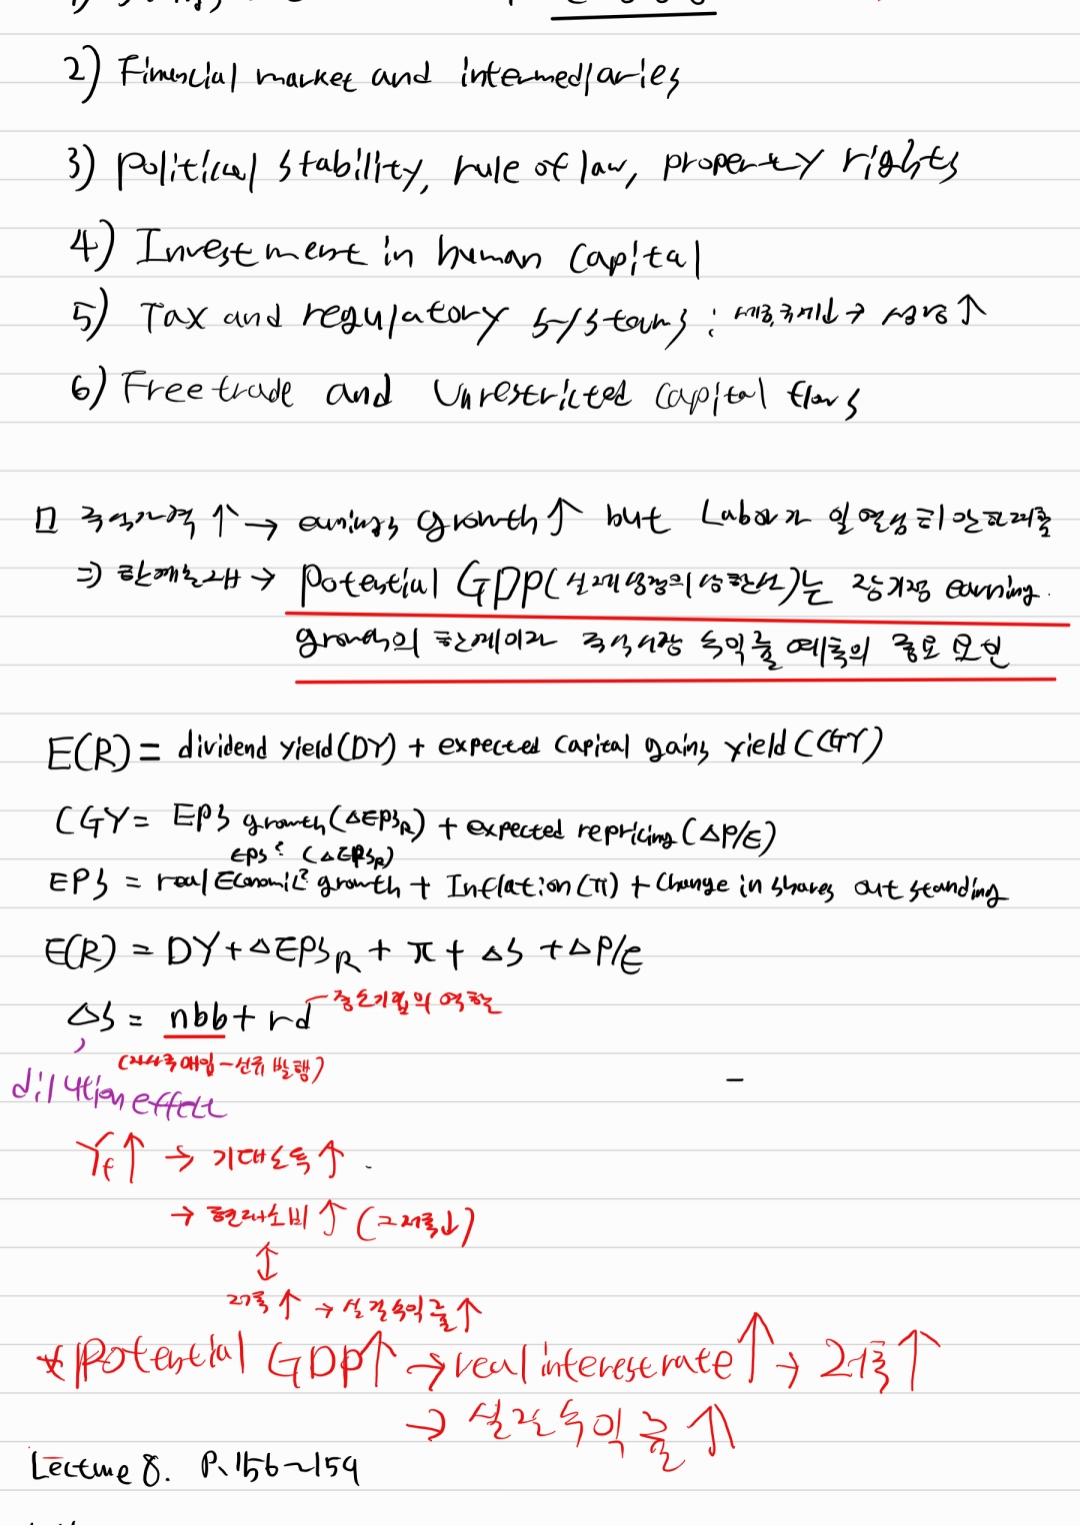 2) Financial market and intermediaries
3) political stability, rule of law, property rights
4) Investment in human capital
5) Tax and regulatory systems : 세금, 규제↓ → 성장↑
6) Free trade and Unrestricted capital flows
□ 주식가격 ↑ → earnings growth ↑ but Labor가
⇒ → potential GDP(실제성장의 상한선)는 장기적 earning
growth의 한계이자 주식시장 수익률 예측의 중요 요인
E(R) = dividend yield(DY) + expected capital gains yield (CGY)
CGY = EPS growth(△EPSR) + expected repricing (△P/E)
EPS? (△EPSR)
EPS = real Economic? growth + Inflation(π) + change in shares outstanding
E(R) = DY + △EPSR + π + △S + △P/E
△S = nbb + rd 중소기업의 역할
(자사주매입 - 신규 발행)
dilution effect
Yf↑ → 기대소득↑
→ 현재소비↑ (= 저축↓)
↕
저축↑ → 실질수익률↑
* potential GDP↑ → real interest rate↑ → 저축↑
→ 실질수익률↑
Lecture 8. P. 156~159